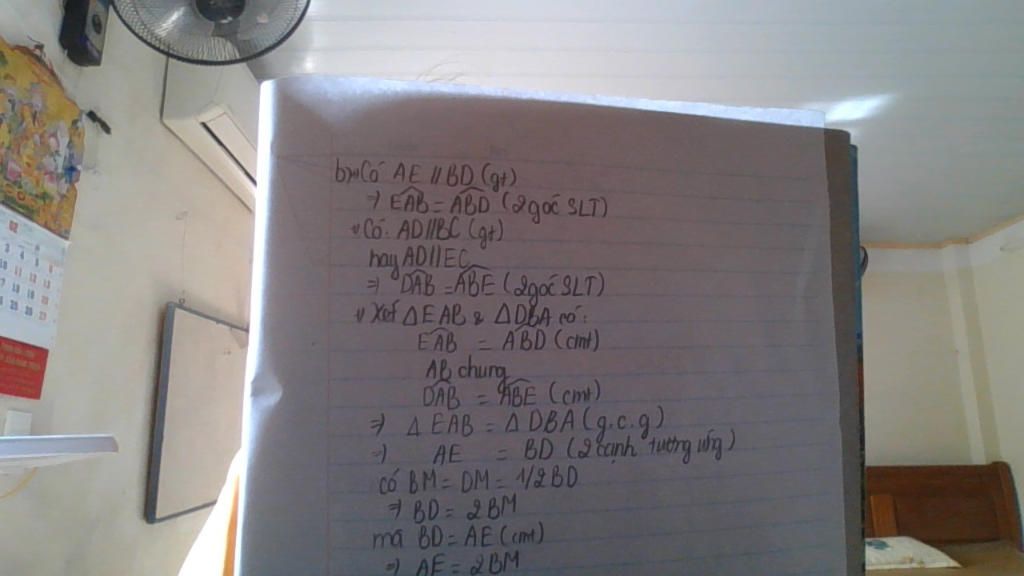 b) *) Có AE // BD (gt)
⇒ EAB = ABD (2 góc SLT)
*) Có: AD//BC (gt)
hay AD//EC
⇒ DAB = ABE (2 góc SLT)
*) Xét △EAB & △DBA có:
EAB = ABD (cmt)
AB chung
DAB = ABE (cmt)
⇒ △EAB = △DBA (g.c.g)
⇒ AE = BD (2 cạnh tương ứng)
có BM = DM = 1/2BD
⇒ BD = 2BM
mà BD = AE (cmt)
⇒ AE = 2BM